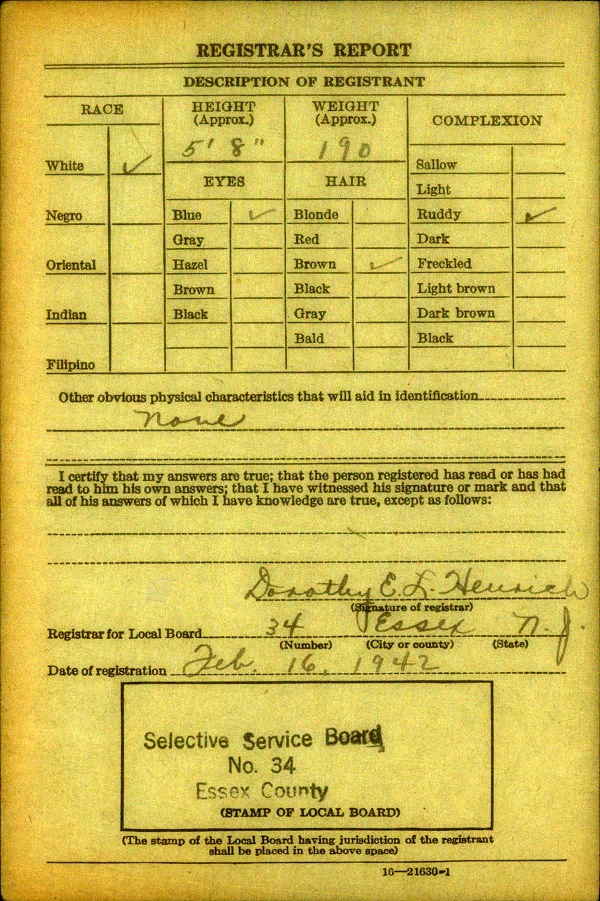 REGISTRAR'S REPORT
DESCRIPTION OF REGISTRANT
RACE
HEIGHT
(Approx.)
WEIGHT
(Approx.)
COMPLEXION
5' 8"
190
White ✓
Sallow
EYES
HAIR
Light
Negro
Blue ✓
Blonde
Ruddy ✓
Gray
Red
Dark
Oriental
Hazel
Brown ✓
Freckled
Brown
Black
Light brown
Indian
Black
Gray
Dark brown
Bald
Black
Filipino
Other obvious physical characteristics that will aid in identification
None
I certify that my answers are true; that the person registered has read or has had
read to him his own answers; that I have witnessed his signature or mark and that
all of his answers of which I have knowledge are true, except as follows:
Dorothy E. L. Henrich
(Signature of registrar)
Registrar for Local Board 34 Essex N. J.
(Number) (City or county) (State)
Date of registration Feb. 16, 1942
Selective Service Board
No. 34
Essex County
(STAMP OF LOCAL BOARD)
(The stamp of the Local Board having jurisdiction of the registrant
shall be placed in the above space)
16—21630-1